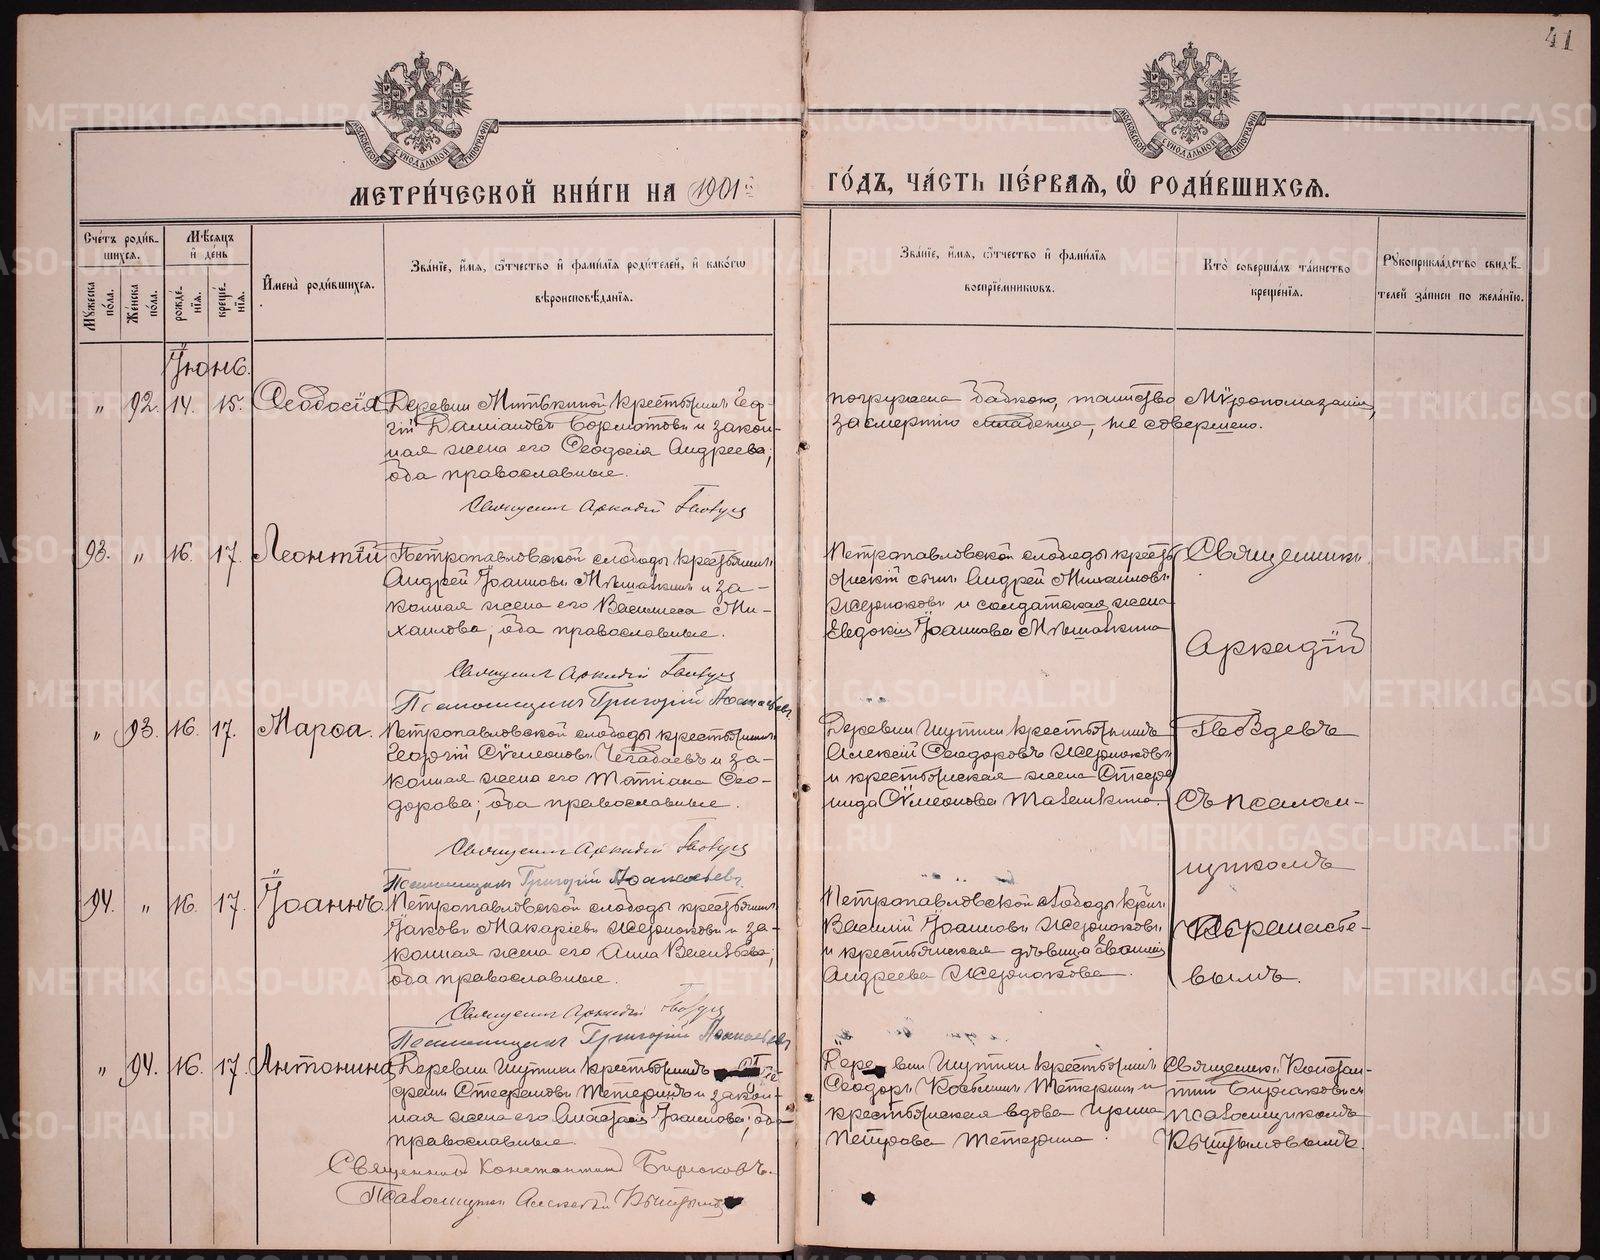 41
МОСКОВСКОЙ СѴНОДАЛЬНОЙ ТИПОГРАФІИ
МОСКОВСКОЙ СѴНОДАЛЬНОЙ ТИПОГРАФІИ
МЕТРИ́ЧЕСКОЙ КНИ́ГИ НА 1901й
ГО́ДЪ, ЧА́СТЬ ПЕ́РВАѦ, Ѽ РОДИ́ВШИХСѦ.
Сче́тъ роди́в-
шихсѧ.
Мѣ́сѧцъ
и҆ де́нь
Мꙋ́жеска
по́ла.
Же́нска
по́ла.
рожде́-
нїѧ.
креще́-
нїѧ.
И҆мена̀ роди́вшихсѧ.
Зва́нїе, и҆́мѧ, ѻ҆́тчество и҆ фами́лїѧ роди́телей, и҆ како́гѡ
вѣроисповѣ́данїѧ.
Зва́нїе, и҆́мѧ, ѻ҆́тчество и҆ фами́лїѧ
воспрїе́мникѡвъ.
Кто̀ соверша́лъ та́инство
креще́нїѧ.
Рꙋкоприкла́дство свидѣ́-
телей за́писи по жела́нїю.
Іюнь.
„ 92. 14. 15. Ѳеодосія
Деревни Митькиной крестьянинъ Геор-
гій Даміановъ Бормотовъ и закон-
ная жена его Ѳеодосія Андреева;
оба православные.
Священникъ Аркадій Гвоздевъ
погружена бабкою, таинство Мѵропомазанія,
за смертію младенца, не совершено.
93. „ 16. 17. Леонтій
Петропавловской слободы крестьянинъ
Андрей Іоанновъ Мѣшавкинъ и за-
конная жена его Василиса Ми-
хаилова; оба православные.
Священникъ Аркадій Гвоздевъ
Псаломщикъ Григорій
Петропавловской слободы кресть-
янскій сынъ Андрей Михаиловъ
Жернаковъ и солдатская жена
Евдокія Іоаннова Мѣшавкина
Священникъ
Аркадій
Гвоздевъ
съ псалом-
щикомъ
„ 93. 16. 17. Марѳа.
Петропавловской слободы крестьянинъ
Георгій Сѵмеоновъ и за-
конная жена его Татіана Ѳео-
дорова; оба православные.
Священникъ Аркадій Гвоздевъ
Псаломщикъ Григорій
Деревни Шутихи крестьянинъ
Алексій Ѳеодоровъ Жернаковъ
и крестьянская жена Степа-
нида Сѵмеонова
94. „ 16. 17. Іоаннъ.
Петропавловской слободы крестьянинъ
Іаковъ Макаріевъ Жернаковъ и за-
конная жена его Анна Васильева;
оба православные.
Священникъ Аркадій Гвоздевъ
Псаломщикъ Григорій
Петропавловской слободы кр-нъ
Василій Іоанновъ Жернаковъ
и крестьянская дѣвица
Андреева Жернакова.
вымъ.
„ 94. 16. 17. Антонина
Деревни Шутихи крестьянинъ
Стефановъ Тетеринъ и закон-
ная жена его Анастасія Іоаннова; оба
православные.
Священникъ Константинъ Бирюковъ.
Псаломщикъ Алексѣй Кыштымовъ
Деревни Шутихи крестьянинъ
Ѳеодоръ Тетеринъ и
крестьянская вдова Ирина
Петрова Тетерина.
Священникъ Констан-
тинъ Бирюковъ съ
псаломщикомъ
Кыштымовымъ.
METRIKI.GASO-URAL.RU